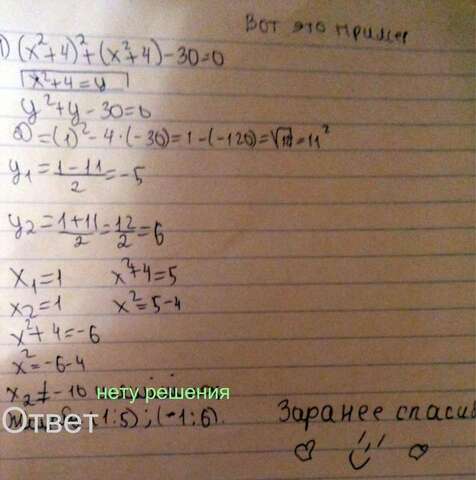 Вот это пример
1) (x²+4)²+(x²+4)-30=0
x²+4=y
y²+y-30=0
D=(1)²-4·(-30)=1-(-120)=√121=11²
y₁=1-11/2=-5
y₂=1+11/2=12/2=6
x₁=1 x²+4=5
x₂=1 x²=5-4
x²+4=-6
x²=-6-4
x₂≠-10 нету решения
Ответ 1;5);(-1;6).
Заранее спасиб